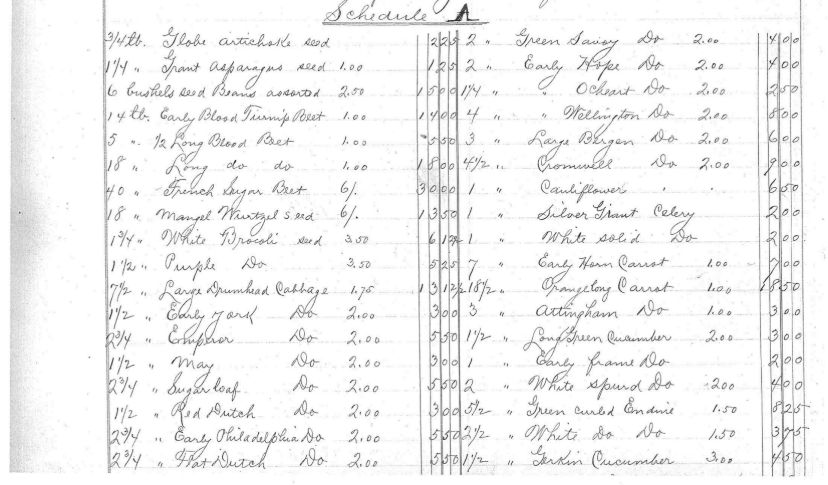 Schedule A
3/4 lb. Globe artichoke seed 2 25
1 1/4 " Grant Asparagus seed 1.00 1 25
6 bushels seed Beans assorted 2.50 15 00
14 lb. Early Blood Turnip Beet 1.00 14 00
5 " 1/2 Long Blood Beet 1.00 5 50
18 " Long do do 1.00 18 00
40 " French Sugar Beet 6/. 30 00
18 " Mangel Wurtzel seed 6/. 13 50
1 3/4 " White Brocoli seed 3.50 6 12 1/2
1 1/2 " Purple Do 3.50 5 25
7 1/2 " Large Drumhead Cabbage 1.75 13 12 1/2
1 1/2 " Early York Do 2.00 3 00
2 3/4 " Emperor Do 2.00 5 50
1 1/2 " May Do 2.00 3 00
2 3/4 " Sugar loaf Do 2.00 5 50
1 1/2 " Red Dutch Do 2.00 3 00
2 3/4 " Early Philadelphia Do 2.00 5 50
2 3/4 " Flat Dutch Do 2.00 5 50
2 " Green Savoy Do 2.00 4 00
2 " Early Hope Do 2.00 4 00
1 1/4 " " Ocheart Do 2.00 2 50
4 " " Wellington Do 2.00 8 00
3 " Large Bergen Do 2.00 6 00
4 1/2 " Cromwell Do 2.00 9 00
1 " Cauliflower " " 6 50
1 " Silver Grant Celery 2 00
1 " White solid Do 2 00
7 " Early Horn Carrot 1.00 7 00
18 1/2 " Orangelong Carrot 1.00 18 50
3 " Attingham Do 1.00 3 00
1 1/2 " Long Green Cucumber 2.00 3 00
1 " Early frame Do 2 00
2 " White spurd Do 2 00 4 00
5 1/2 " Green curled Endine 1.50 8 25
2 1/2 " White Do Do 1.50 3 75
1 1/2 " Gerkin Cucumber 3.00 4 50